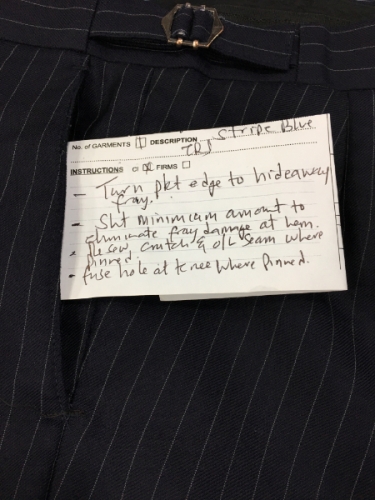 No. of GARMENTS 1 DESCRIPTION Stripe Blue
TRS
INSTRUCTIONS FIRMS
- Turn pkt edge to hideaway
fray.
- Sht minimum amount to
eliminate fray damage at hem.
- Resew crutch & o/L seam where
pinned.
- fuse hole at knee where pinned.